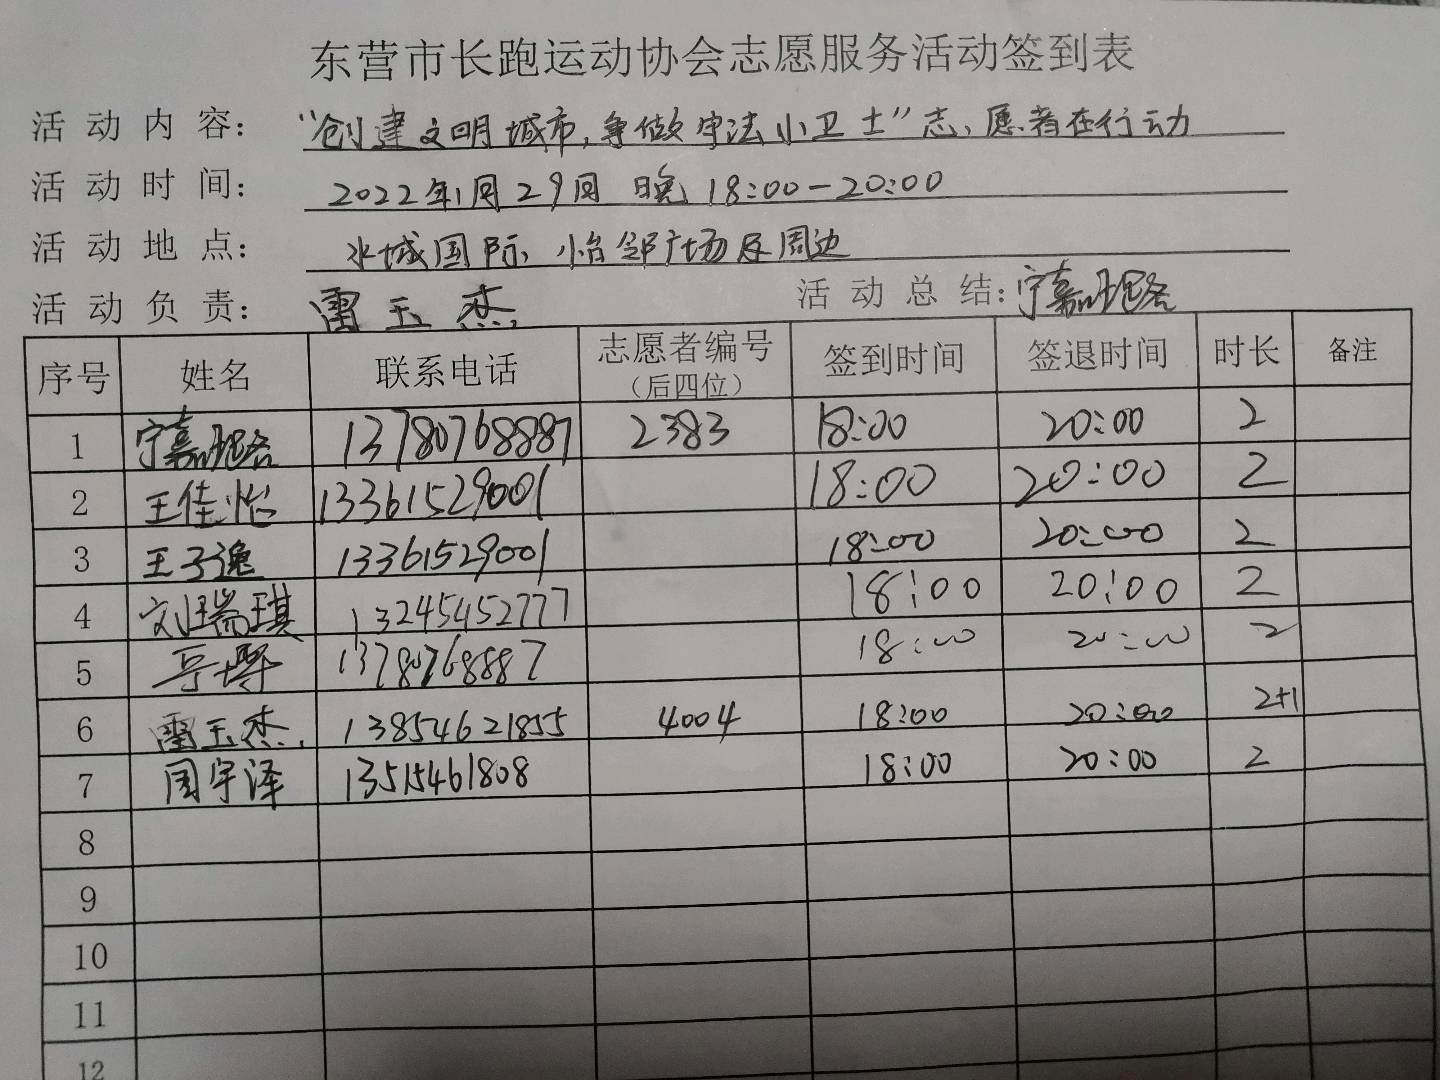 东营市长跑运动协会志愿服务活动签到表
活动内容：“创建文明城市，争做守法小卫士”志愿者在行动
活动时间：2022年1月29日 晚 18:00-20:00
活动地点：水城国际、怡邻广场及周边
活动负责：雷玉杰 活动总结：宁嘉
序号 姓名 联系电话 志愿者编号（后四位） 签到时间 签退时间 时长 备注
1 宁嘉 13780768887 2383 18:00 20:00 2
2 王佳怡 13361529001 18:00 20:00 2
3 王子逸 13361529001 18:00 20:00 2
4 刘瑞琪 13245452777 18:00 20:00 2
5 13780768887 18:00 20:00 2
6 雷玉杰 13854621855 4004 18:00 20:00 2+1
7 周宇泽 13515461808 18:00 20:00 2
8
9
10
11
12